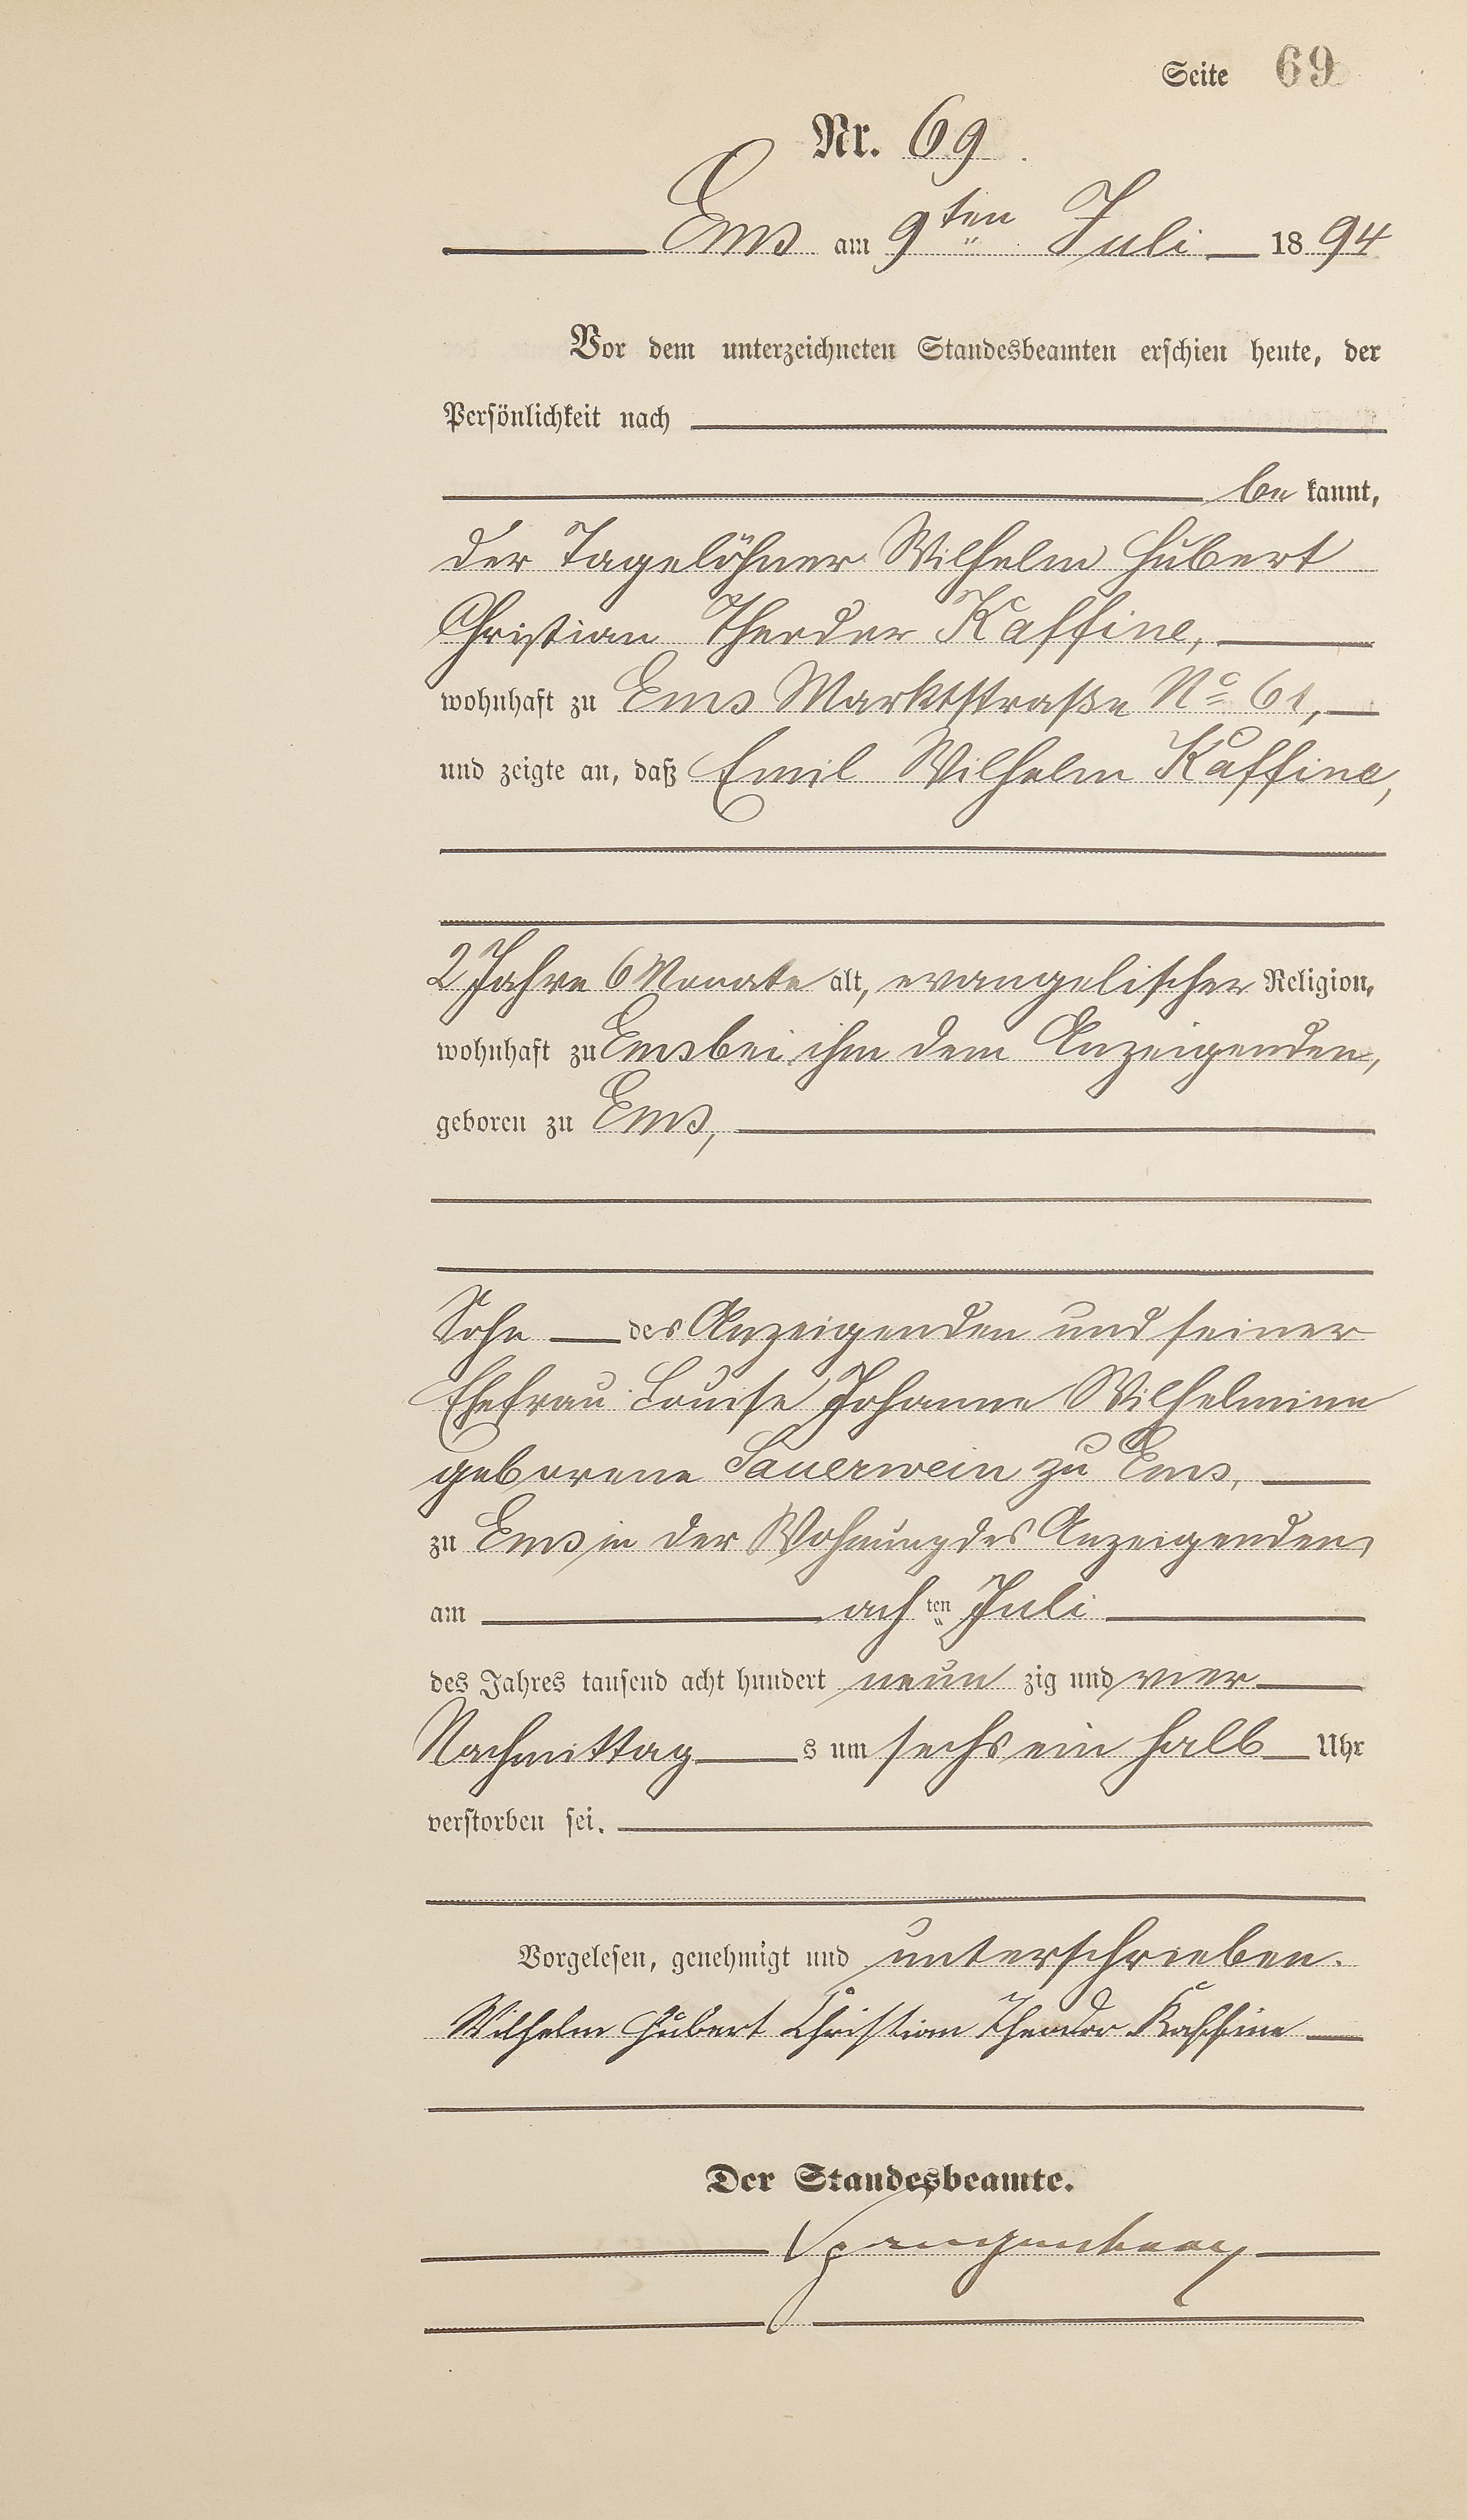 Seite 69
Nr. 69
Ems am 9ten Juli 1894
Vor dem unterzeichneten Standesbeamten erschien heute, der
Persönlichkeit nach
be kannt,
der Tagelöhner Wilhelm Hubert
Christian Theodor Kaffine,
wohnhaft zu Ems Marktstraße No 61,
und zeigte an, daß Emil Wilhelm Kaffine,
2 Jahre 6 Monate alt, evangelischer Religion,
wohnhaft zu Ems bei ihm dem Anzeigenden,
geboren zu Ems,
Sohn des Anzeigenden und seiner
Ehefrau Louise Johanne Wilhelmine
geborene Sauerwein zu Ems,
zu Ems in der Wohnung des Anzeigenden,
am ach ten Juli
des Jahres tausend acht hundert neun zig und vier
Nachmittag s um sechs ein halb Uhr
verstorben sei.
Vorgelesen, genehmigt und unterschrieben.
Wilhelm Hubert Christian Theodor Kaffine
Der Standesbeamte.